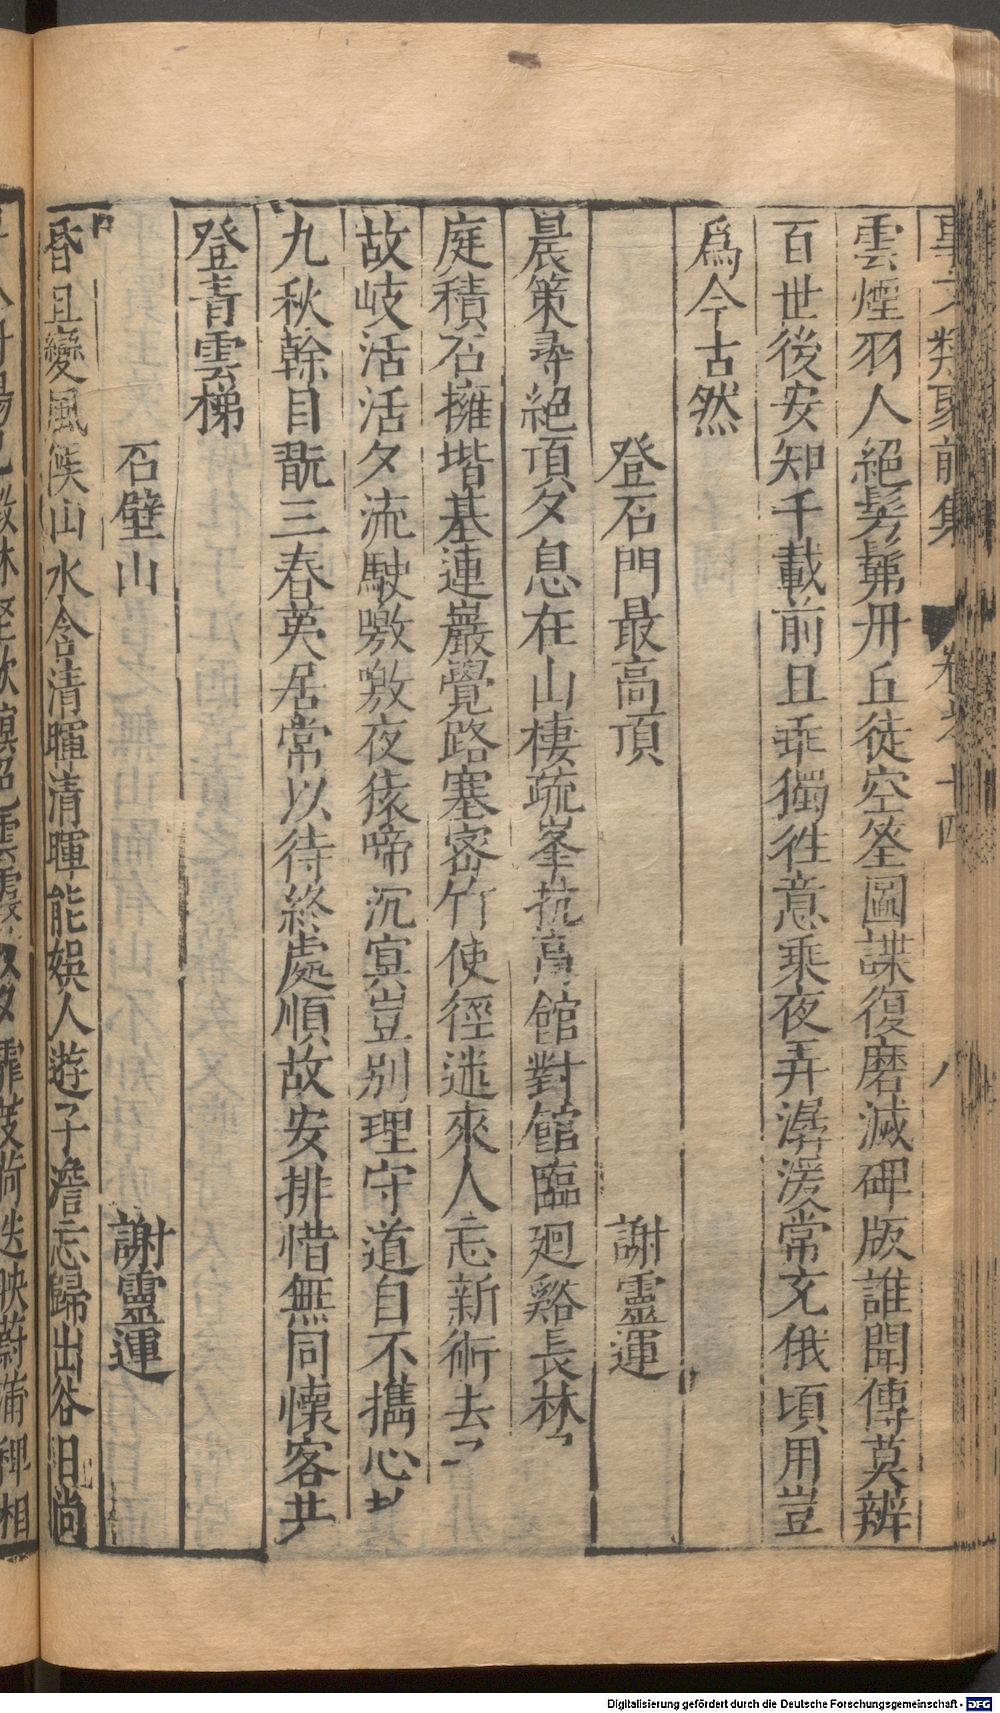 事文類聚前集 卷之十四 八
雲煙羽人絕髣髴丹丘徒空筌圖諜復磨滅碑版誰聞傳莫辨
百世後安知千載前且乖獨徃意乘夜弄潺湲常充俄頃用豈
爲今古然
登石門最高頂 謝靈運
晨策尋絕頂夕息在山棲疏峯抗高館對館臨廻谿長林
庭積石擁堦基連巖覺路塞密竹使徑迷來人忘新術去
故岐活活夕流駛噭噭夜猿啼沉冥豈别理守道自不攜心
九秋幹目翫三春荑居常以待終處順故安排惜無同懷客共
登青雲梯
石壁山 謝靈運
昏旦變風候山水含清暉清暉能娛人遊子澹忘歸出谷日尚
林壑歛暝色雲霞 夕霏芰荷迭映蔚蒲稗相
Digitalisierung gefördert durch die Deutsche Forschungsgemeinschaft - DFG